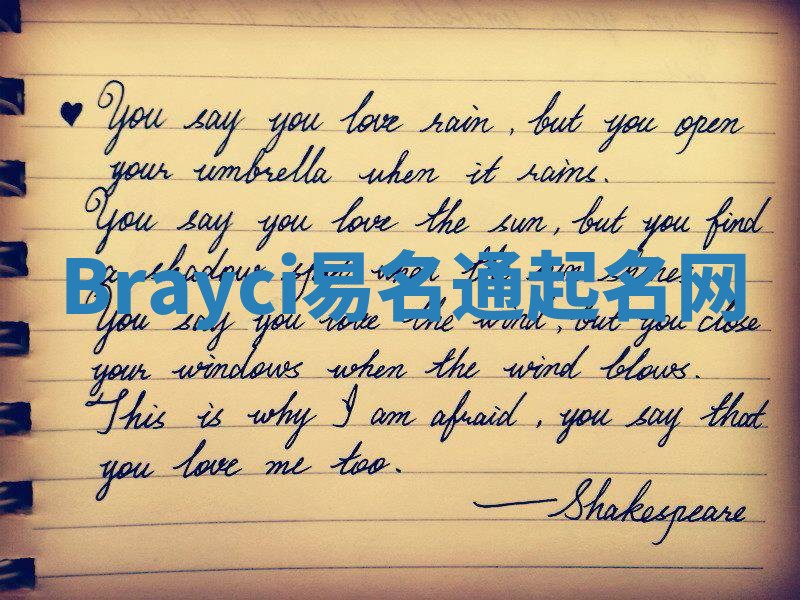 You say you love rain, but you open
your umbrella when it rains.
You say you love the sun, but you find
a shadow spot when the sun shines.
Brayci易名通起名网
You say you love the wind, but you close
your windows when the wind blows.
This is why I am afraid, you say that
you love me too.
—Shakespeare